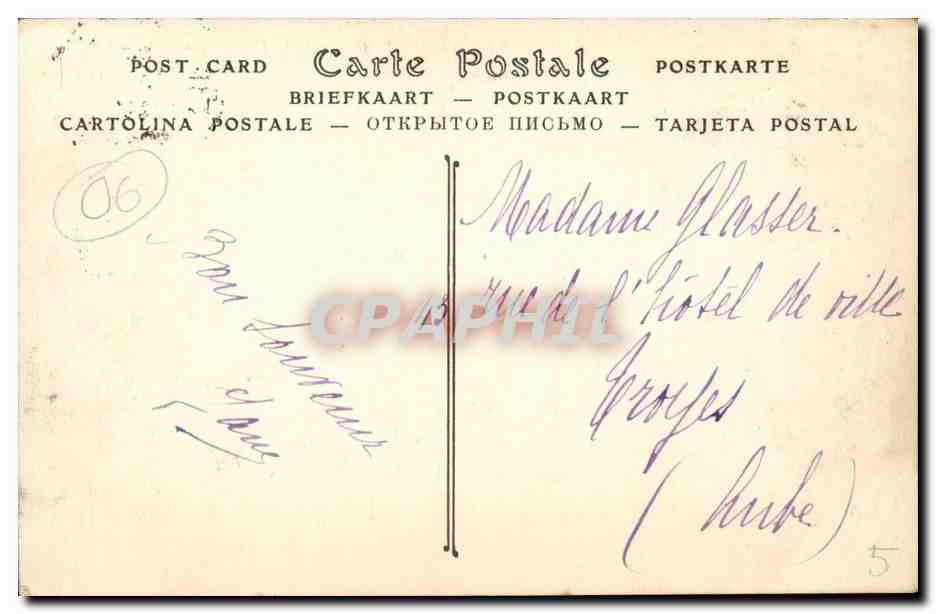 POST CARD Carte Postale POSTKARTE
BRIEFKAART — POSTKAART
CARTOLINA POSTALE — ОТКРЫТОЕ ПИСЬМО — TARJETA POSTAL
06
Bon souvenir
Madame Glasser.
rue de l'hôtel de ville
Troyes
(Aube)
5
CPAPHIL